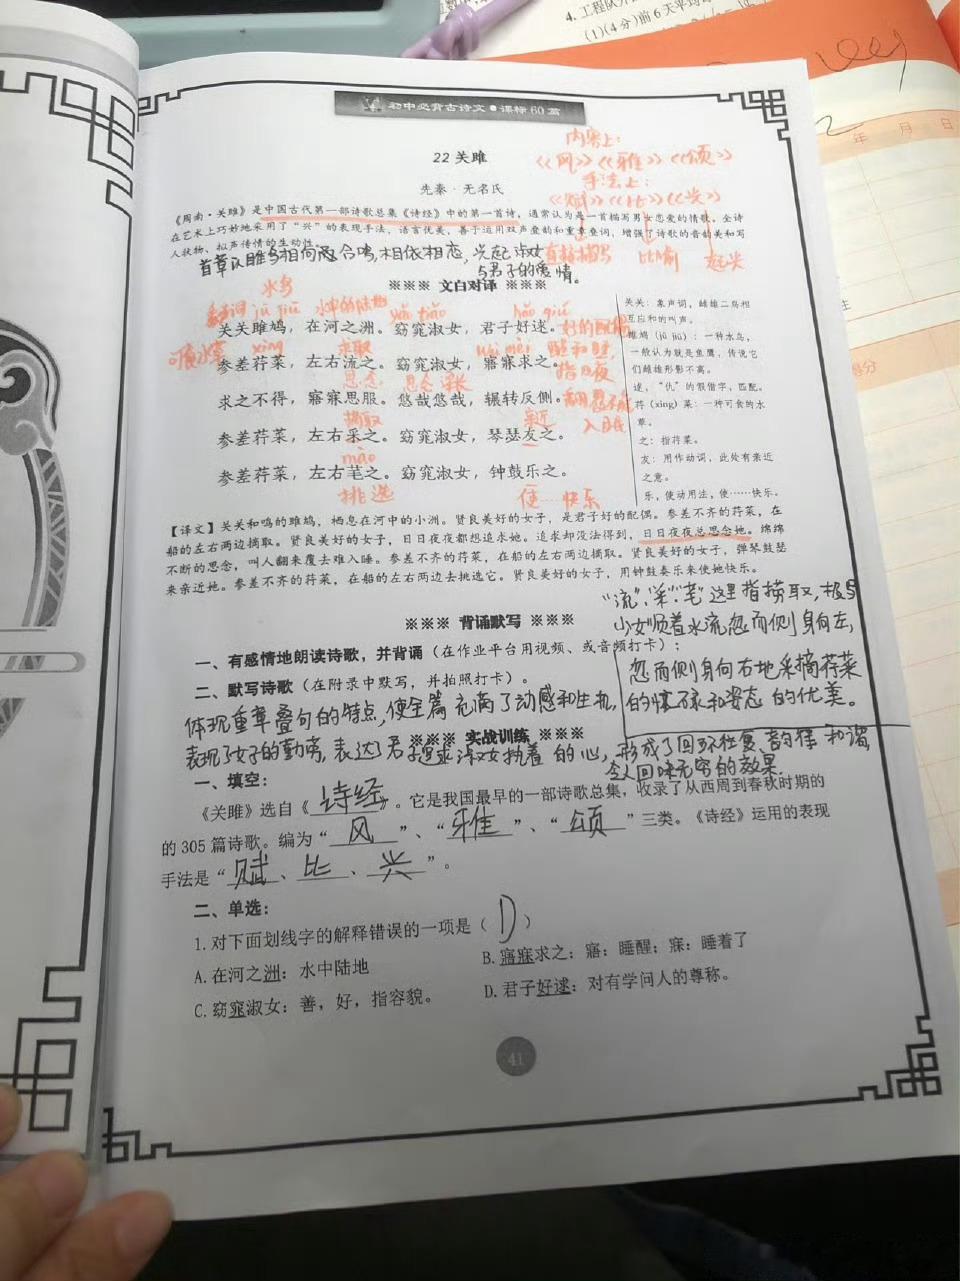 4.工程队
(1)(4分)前6天平均
年 月 日
初中必背古诗文●课标60篇
内容上：
《风》《雅》《颂》
手法上：
《赋》《比》《兴》
直接描写 比喻 起兴
22 关雎
先秦·无名氏
《周南·关雎》是中国古代第一部诗歌总集《诗经》中的第一首诗，通常认为是一首描写男女恋爱的情歌。全诗
在艺术上巧妙地采用了“兴”的表现手法，语言优美，善于运用双声叠韵和重章叠词，增强了诗歌的音韵美和写
人状物、拟声传情的生动性。
首章以雎鸟相向合鸣，相依相恋，兴起淑女
与君子的爱情。
※※※ 文白对译 ※※※
水鸟
jū jiū 水中的陆地 yǎo tiǎo hǎo qiú
关关雎鸠，在河之洲。窈窕淑女，君子好逑。好的配偶
xìng 求取 wù mèi 醒和睡
参差荇菜，左右流之。窈窕淑女，寤寐求之。指日夜
思念 思念深长
求之不得，寤寐思服。悠哉悠哉，辗转反侧。
摘取 亲近 入眠
参差荇菜，左右采之。窈窕淑女，琴瑟友之。
mào
参差荇菜，左右芼之。窈窕淑女，钟鼓乐之。
挑选 使……快乐
关关：象声词，雌雄二鸟相
互应和的叫声。
雎鸠（jū jiū）：一种水鸟，
一般认为就是鱼鹰，传说它
们雌雄形影不离。
逑，“仇”的假借字，匹配。
荇（xìng）菜：一种可食的水
草。
之：指荇菜。
友：用作动词，此处有亲近
之意。
乐，使动用法，使……快乐。
【译文】关关和鸣的雎鸠，栖息在河中的小洲。贤良美好的女子，是君子好的配偶。参差不齐的荇菜，在
船的左右两边摘取。贤良美好的女子，日日夜夜都想追求她。追求却没法得到，日日夜夜总思念她。绵绵
不断的思念，叫人翻来覆去难入睡。参差不齐的荇菜，在船的左右两边摘取。贤良美好的女子，弹琴鼓瑟
来亲近她。参差不齐的荇菜，在船的左右两边去挑选它。贤良美好的女子，用钟鼓奏乐来使她快乐。
“流”、“采”、“芼”这里指捞取，
※※※ 背诵默写 ※※※
少女顺着水流忽而侧身向左，
一、有感情地朗读诗歌，并背诵（在作业平台用视频、或音频打卡）；
忽而侧身向右地采摘荇菜
二、默写诗歌（在附录中默写，并拍照打卡）。
的情态和姿态的优美。
体现重章叠句的特点，使全篇充满了动感和生机，
表现了女子的勤劳，表达了君子追求淑女执着的心，形成了回环往复、韵律和谐，
令人回味无穷的效果。
※※※ 实战训练 ※※※
一、填空：
《关雎》选自《诗经》。它是我国最早的一部诗歌总集，收录了从西周到春秋时期的
的 305 篇诗歌。编为“风”、“雅”、“颂”三类。《诗经》运用的表现
手法是“赋、比、兴”。
二、单选：
1.对下面划线字的解释错误的一项是（D）
A.在河之洲：水中陆地 B.寤寐求之：寤：睡醒；寐：睡着了
C.窈窕淑女：善，好，指容貌。 D.君子好逑：对有学问人的尊称。
41